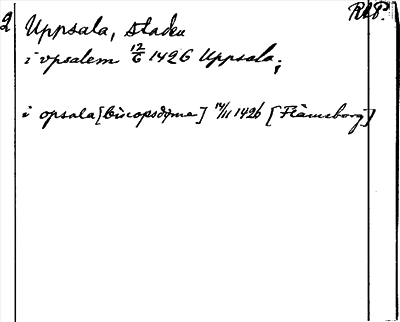 2 Uppsala, staden RAP.
i vpsalem 12/6 1426 Uppsala;
i opsala [biscopsdøme] 14/11 1426 [Flämsborg]